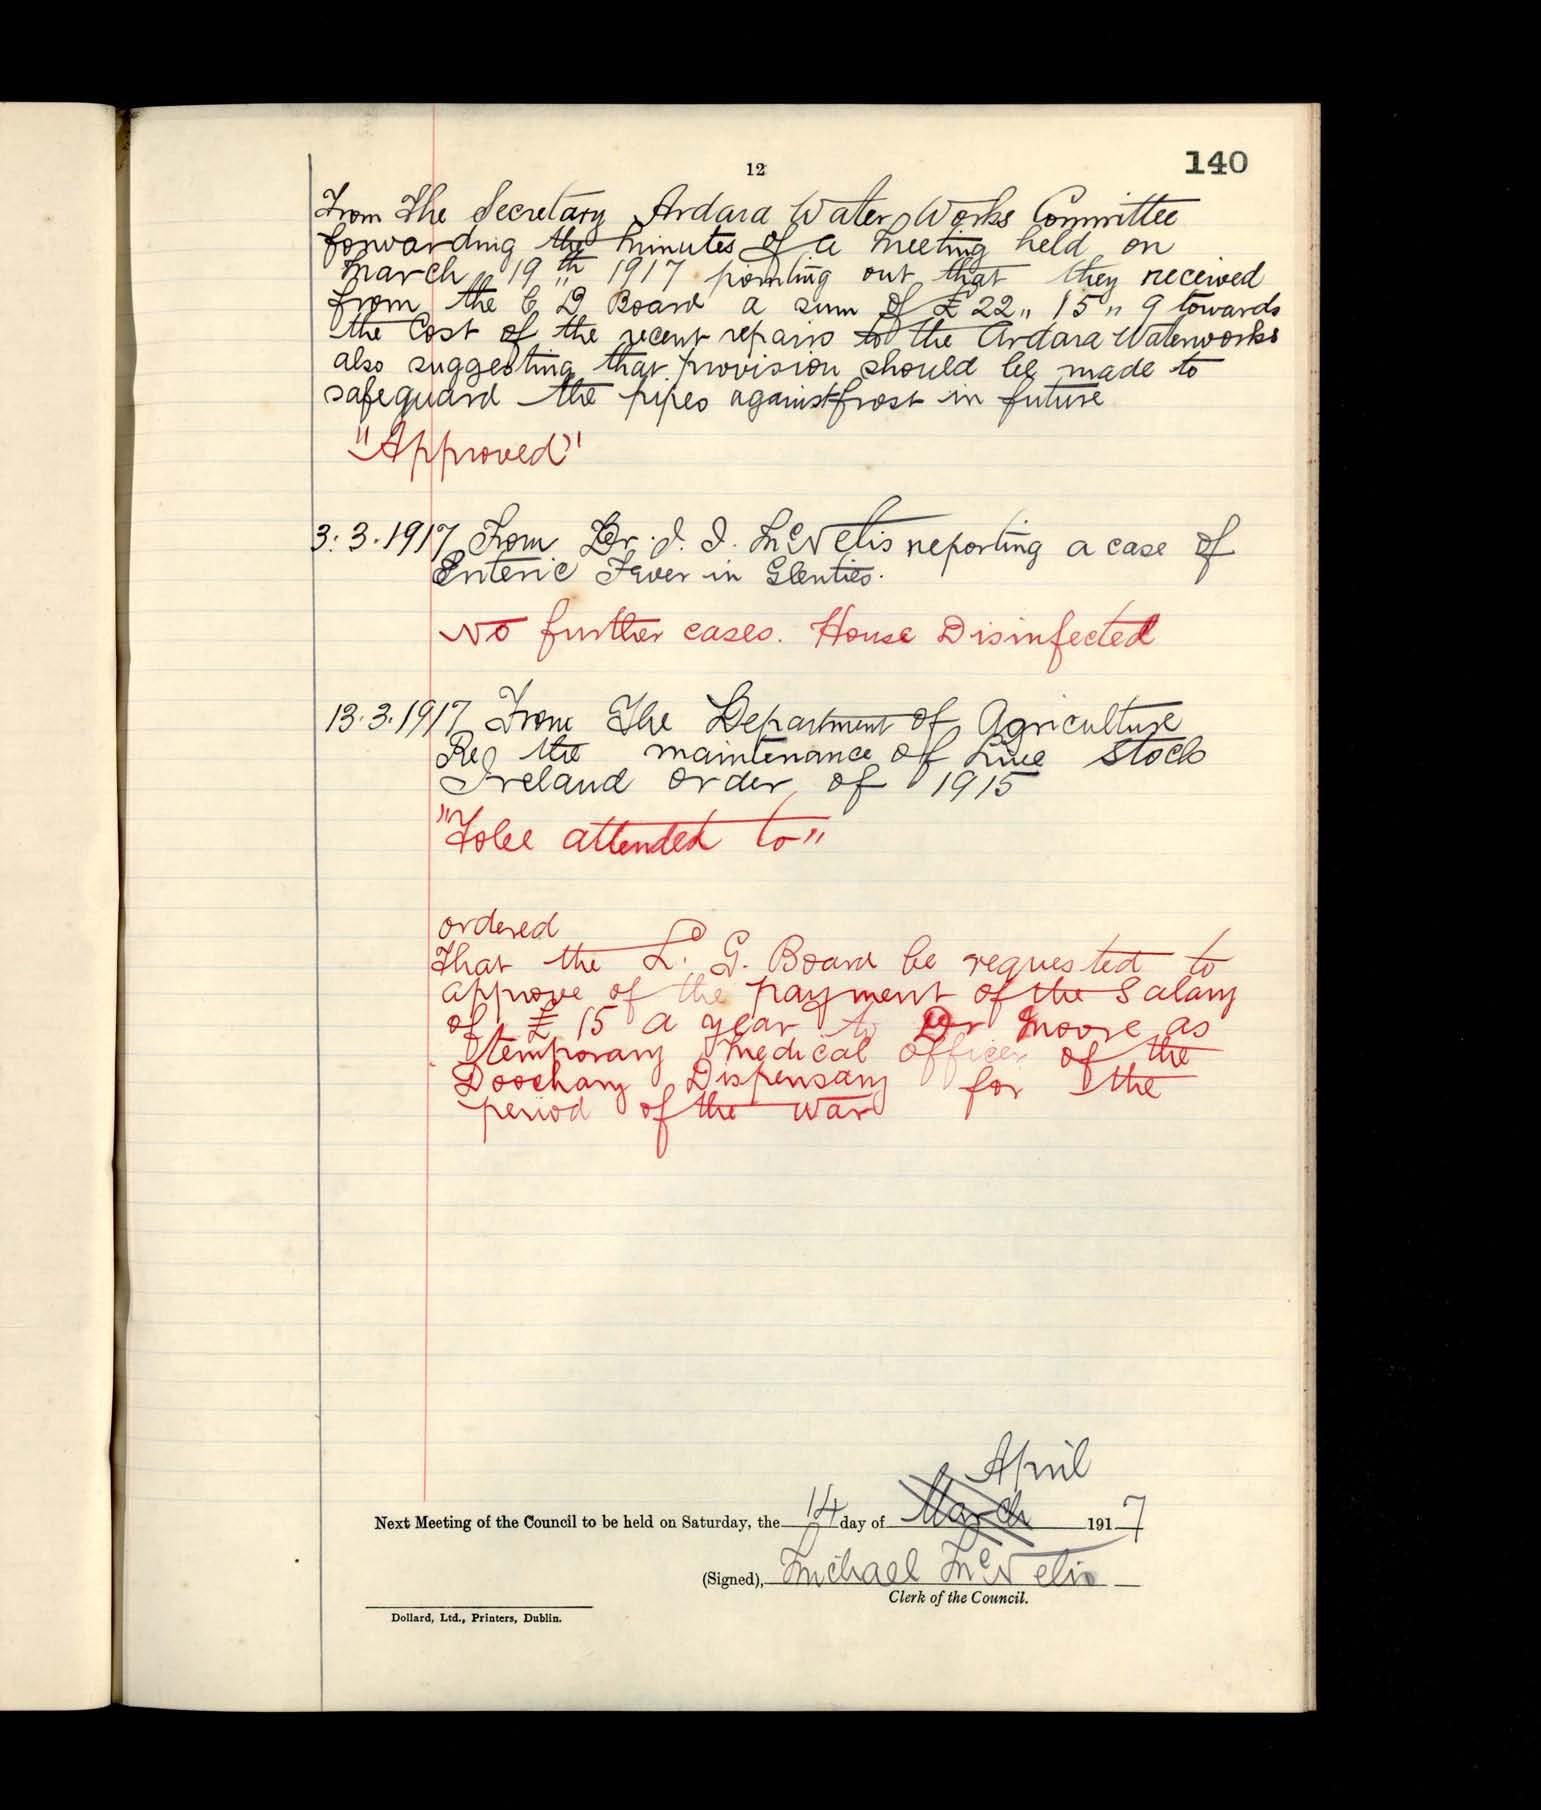 12
140
From The Secretary Ardara Water Works Committee
forwarding the minutes of a meeting held on
March 19th 1917 pointing out that they received
from the C D Board a sum of £22,, 15,, 9 towards
the Cost of the recent repairs to the Ardara Waterworks
also suggesting that provision should be made to
safeguard the pipes against frost in future
"Approved"
3.3.1917 From Dr. J. J. McNelis reporting a case of
Enteric Fever in Glenties.
No further cases. House Disinfected
13.3.1917 From The Department of Agriculture
Re the maintenance of Live Stock
Ireland order of 1915
"To be attended to"
ordered
That the L. G. Board be requested to
approve of the payment of the Salary
of £15 a year to Dr Moore as
temporary Medical officer of the
Doochary Dispensary for the
period of the war
April
Next Meeting of the Council to be held on Saturday, the 14 day of March 1917
(Signed), Michael McNelis
Clerk of the Council.
Dollard, Ltd., Printers, Dublin.